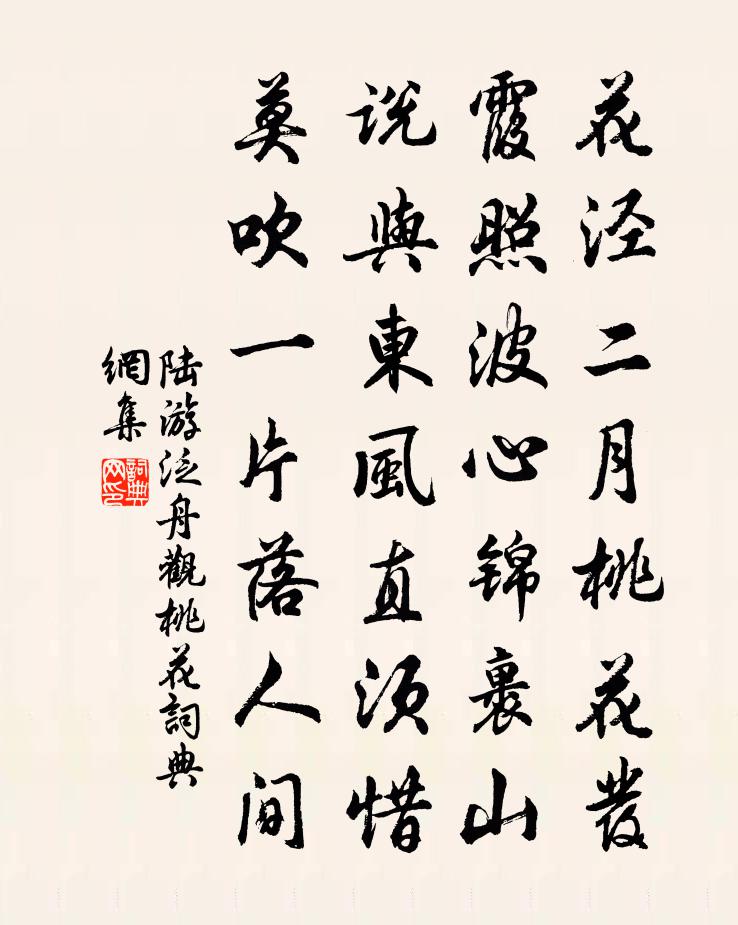 花泾二月桃花發
霞照波心锦裹山
说與東風直须惜
莫吹一片落人间
陆游泛舟觀桃花詞典
網集
詞典
网印